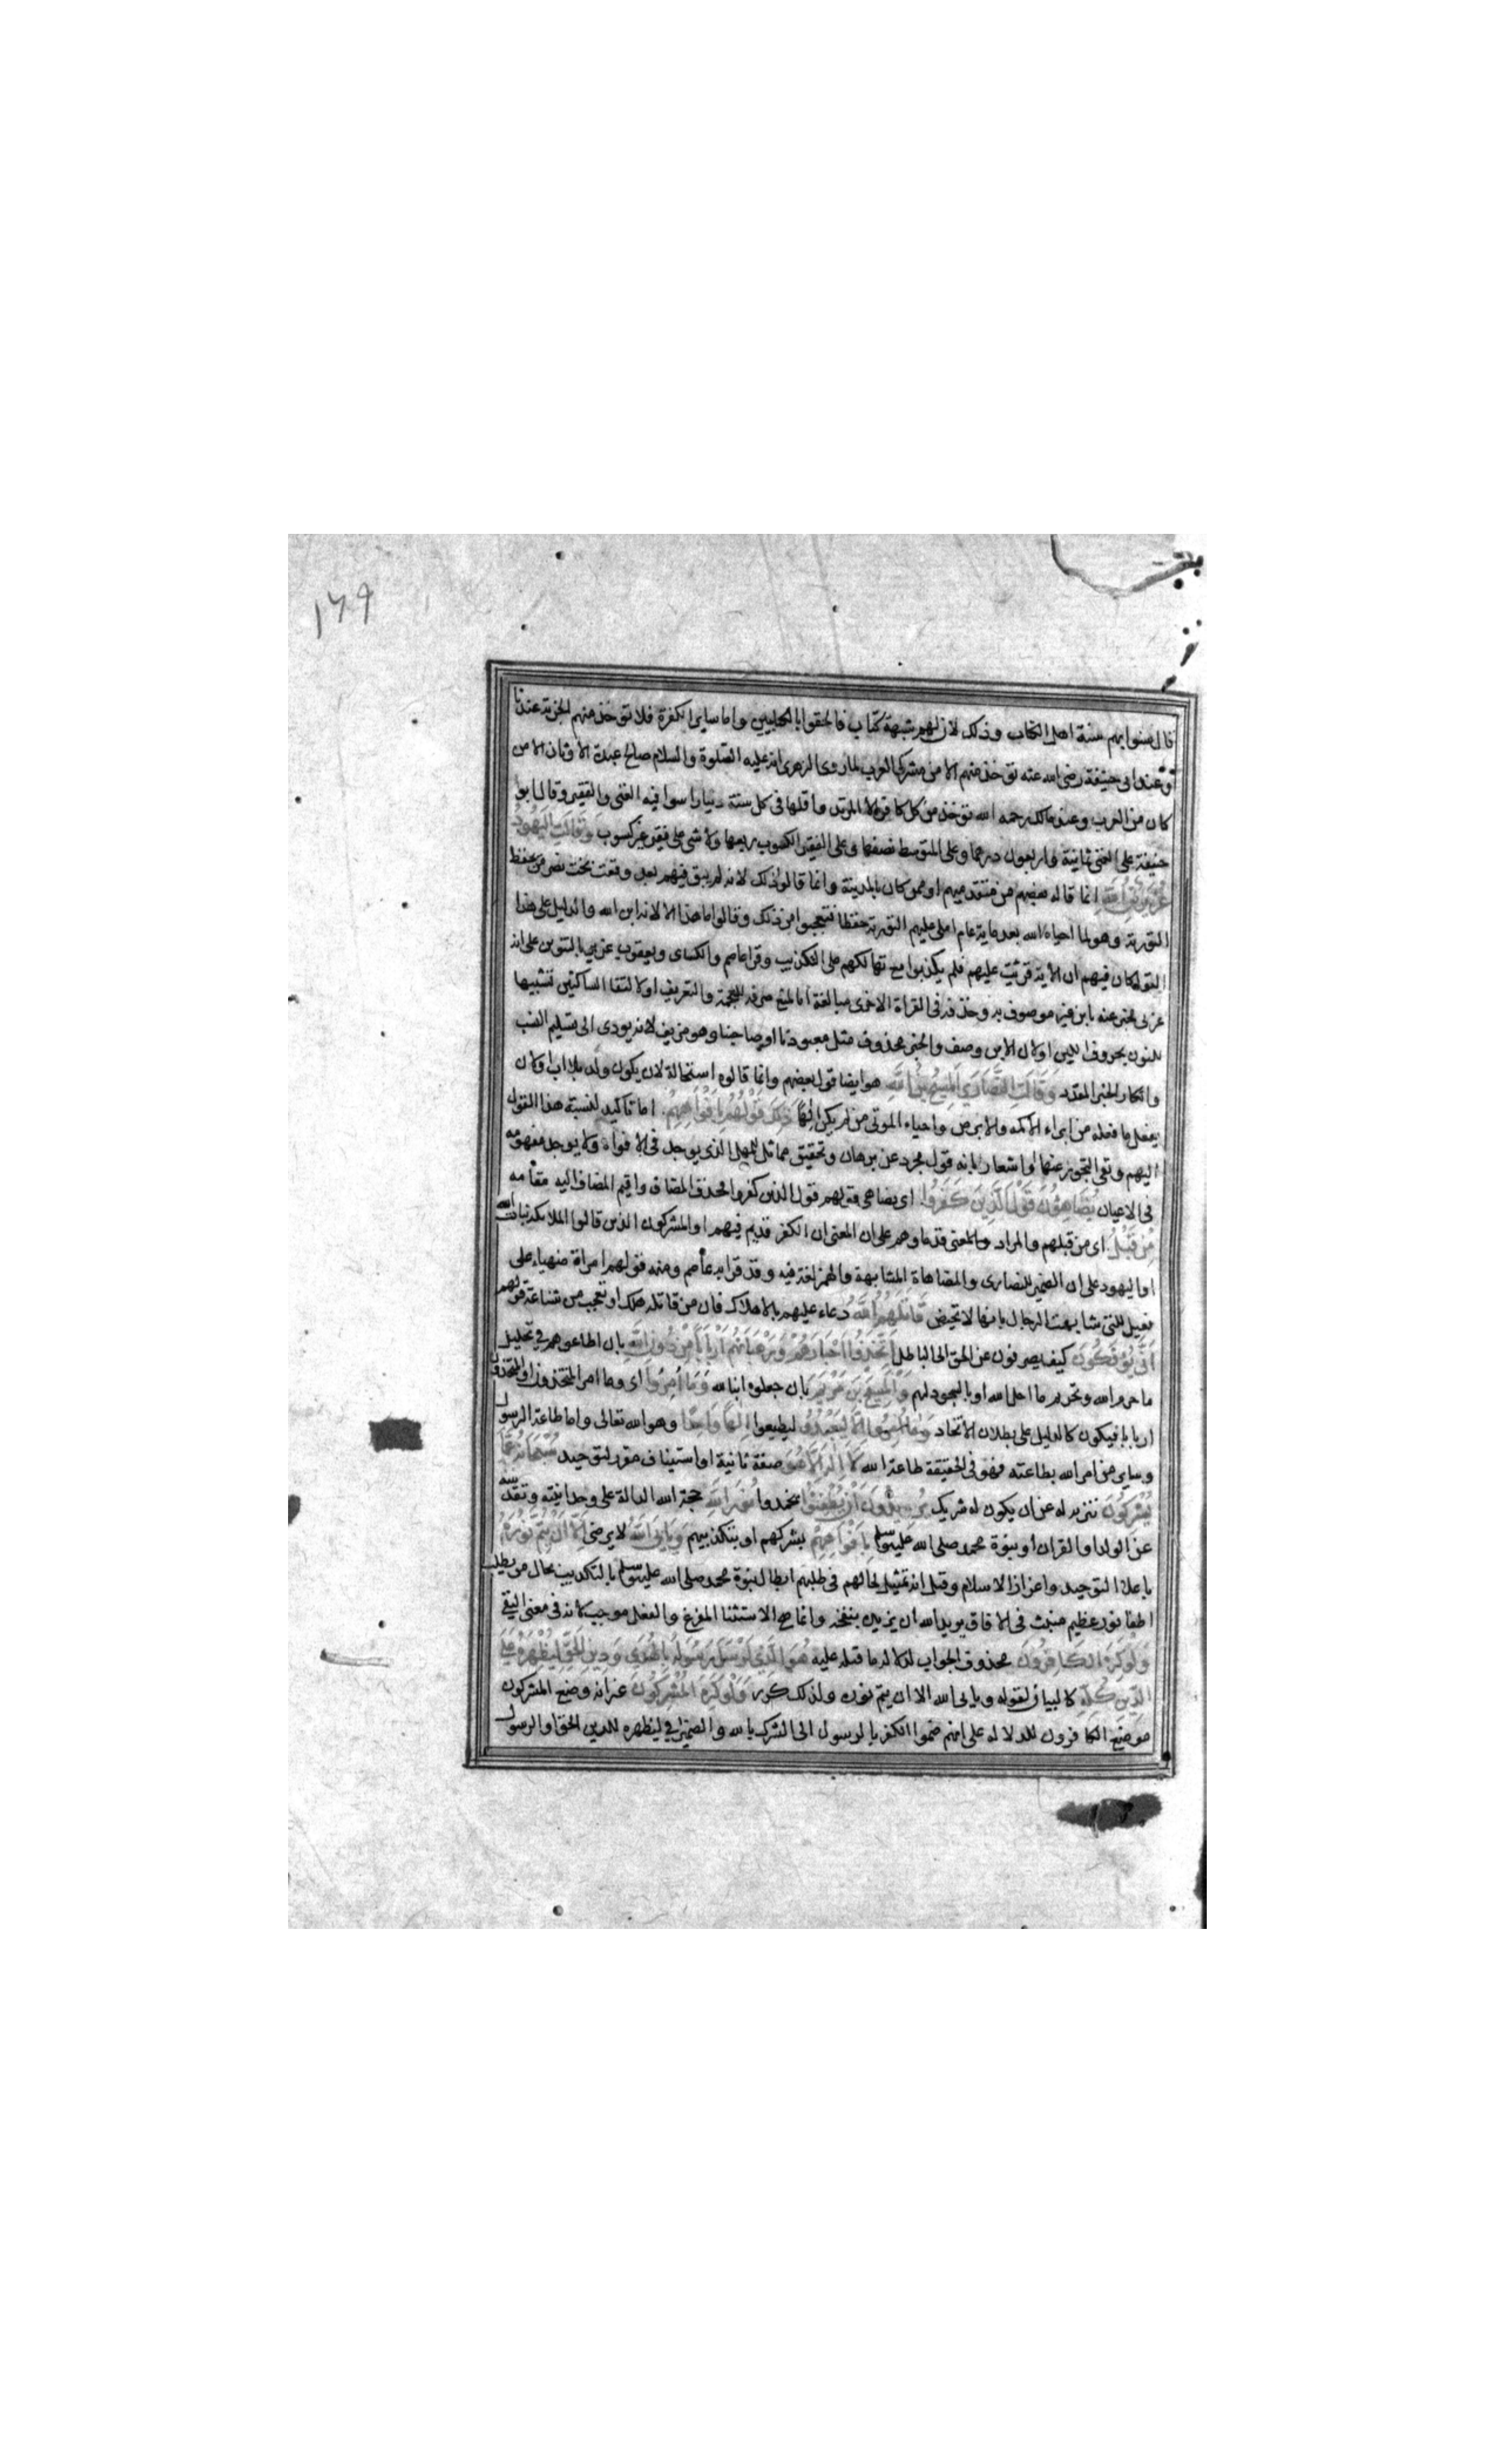 ١٦٩
قال سنوا بهم سنة اهل الكتاب وذلك لان لهم شبهة كتاب فالحقوا بالكتابيين واما ساير الكفرة فلا تؤخذ منهم الجزية عندنا
وعند ابى حنيفة رضى الله عنه تؤخذ منهم الا من مشركى العرب لما روى الزهرى انه عليه الصلوة والسلام صالح عبدة الاوثان الا من
كان من العرب وعند مالك رحمه الله تؤخذ من كل كافر الا المرتد واقلها فى كل سنة دينار اسوا فيه الغنى والفقير وقال ابو
حنيفة على الغنى ثمانية واربعون درهما وعلى المتوسط نصفها وعلى الفقير الكسوب ربعها ولا شى على فقير غير كسوب وَقَالَتِ الْيَهُودُ
عُزَيْرٌ ابْنُ اللَّهِ انما قاله بعضهم من متقدميهم او ممن كان بالمدينة وانما قالوا ذلك لانه لم يبق فيهم بعد وقعت بخت نصر من يحفظ
التورية وهو لما احياه الله بعد ماية عام املى عليهم التورية حفظا فتعجبوا من ذلك وقالوا ما هذا الا لانه ابن الله والدليل على هذا
القول كان فيهم ان الاية قرئت عليهم فلم يكذبوا مع تهالكهم على التكذيب وقرا عاصم والكساى ويعقوب عزير بالتنوين على انه
عربى مخبر عنه بابن غير موصوف به وحذفه فى القراة الاخرى مبالغة اما لمنع صرفه للعجمة والتعريف او لالتقا الساكنين تشبيها
للنون بحروف اللين او لان الابن وصف والخبر محذوف مثل معبودنا او صاحبنا وهو مزيف لانه يودى الى تسليم النسب
وانكار الخبر المقدر وَقَالَتِ النَّصَارَى الْمَسِيحُ ابْنُ اللَّهِ هو ايضا قول بعضهم وانما قالوه استحالة لان يكون ولد بلا اب او لان
يفعل ما فعله من ابراء الاكمه والابرص واحياء الموتى من لم يكن الهًا ذَلِكَ قَوْلُهُم بِأَفْوَاهِهِمْ اما تاكيد لنسبة هذا القول
اليهم ونفى التجوز عنها او اشعار بانه قول مجرد عن برهان وتحقيق مماثل للمهمل الذى يوجد فى الافواه ولا يوجد مفهومه
فى الاعيان يُضَاهِئُونَ قَوْلَ الَّذِينَ كَفَرُوا اى يضاهى قولهم قول الذين كفروا فحذف المضاف واقيم المضاف اليه مقامه
مِن قَبْلُ اى من قبلهم والمراد قدماوهم على ان المعنى ان الكفر قديم فيهم او المشركون الذين قالوا الملائكة بنات الله
او اليهود على ان الضمير للنصارى والمضاهاة المشابهة والهمز لغة فيه وقد قرا به عاصم ومنه قولهم امراة ضهياء على
فعيل للتى شابهت الرجال بانها لا تحيض قَاتَلَهُمُ اللَّهُ دعاء عليهم بالاهلاك فان من قاتله هلك او تعجب من شناعة قولهم
أَنَّى يُؤْفَكُونَ كيف يصرفون عن الحق الى الباطل اتَّخَذُوا أَحْبَارَهُمْ وَرُهْبَانَهُمْ أَرْبَابًا مِّن دُونِ اللَّهِ بان اطاعوهم فى تحليل
ما حرم الله وتحريم ما احل الله او بالسجود لهم وَالْمَسِيحَ ابْنَ مَرْيَمَ بان جعلوه ابنا لله وَمَا أُمِرُوا اى وما امر المتخذون او المتخذون
اربابا فيكون كالدليل على بطلان الاتخاد إِلَّا لِيَعْبُدُوا ليطيعوا إِلَهًا وَاحِدًا وهو الله تعالى واما طاعة الرسول
وساير من امر الله بطاعته فهو فى الحقيقة طاعة الله لَا إِلَهَ إِلَّا هُوَ صفة ثانية او استيناف مقرر للتوحيد سُبْحَانَهُ عَمَّا
يُشْرِكُونَ تنزيه له عن ان يكون له شريك يُرِيدُونَ أَن يُطْفِئُوا يخمدوا نُورَ اللَّهِ حجته الله الدالة على وحدانيته وتقدسه
عن الولد او القران او بنوة محمد صلى الله عليه وسلم بِأَفْوَاهِهِمْ بشركهم او بتكذيبهم وَيَأْبَى اللَّهُ لا يرضى إِلَّا أَن يُتِمَّ نُورَهُ
باعلا التوحيد واعزاز الاسلام وقيل انه تمثيل لحالهم فى طلبهم ابطال نبوة محمد صلى الله عليه وسلم بالتكذيب بحال من يطلب
اطفا نور عظيم منبث فى الافاق يريد الله ان يزيده بنفخه وانما صح الاستثنا المفرغ والفعل موجب لانه فى معنى النفى
وَلَوْ كَرِهَ الْكَافِرُونَ محذوف الجواب لدلالة ما قبله عليه هُوَ الَّذِي أَرْسَلَ رَسُولَهُ بِالْهُدَى وَدِينِ الْحَقِّ لِيُظْهِرَهُ عَلَى
الدِّينِ كُلِّهِ كالبيان لقوله ويابى الله الا ان يتم نوره ولذلك كرر وَلَوْ كَرِهَ الْمُشْرِكُونَ غير انه وضع المشركون
موضع الكافرون للدلالة على انهم ضموا الكفر بالرسول الى الشرك بالله والضمير فى ليظهره للدين الحق او الرسول